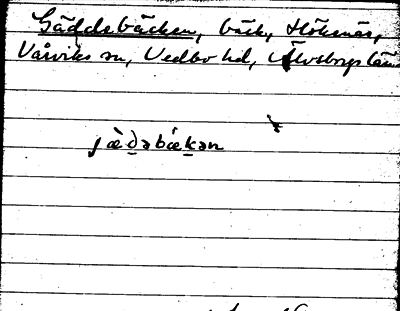 Gäddebäcken, bäck, Hökenäs,
Vårviks sn, Vedbo hd, Älvsborgs län
jæ̀d̲əbæk̲ən